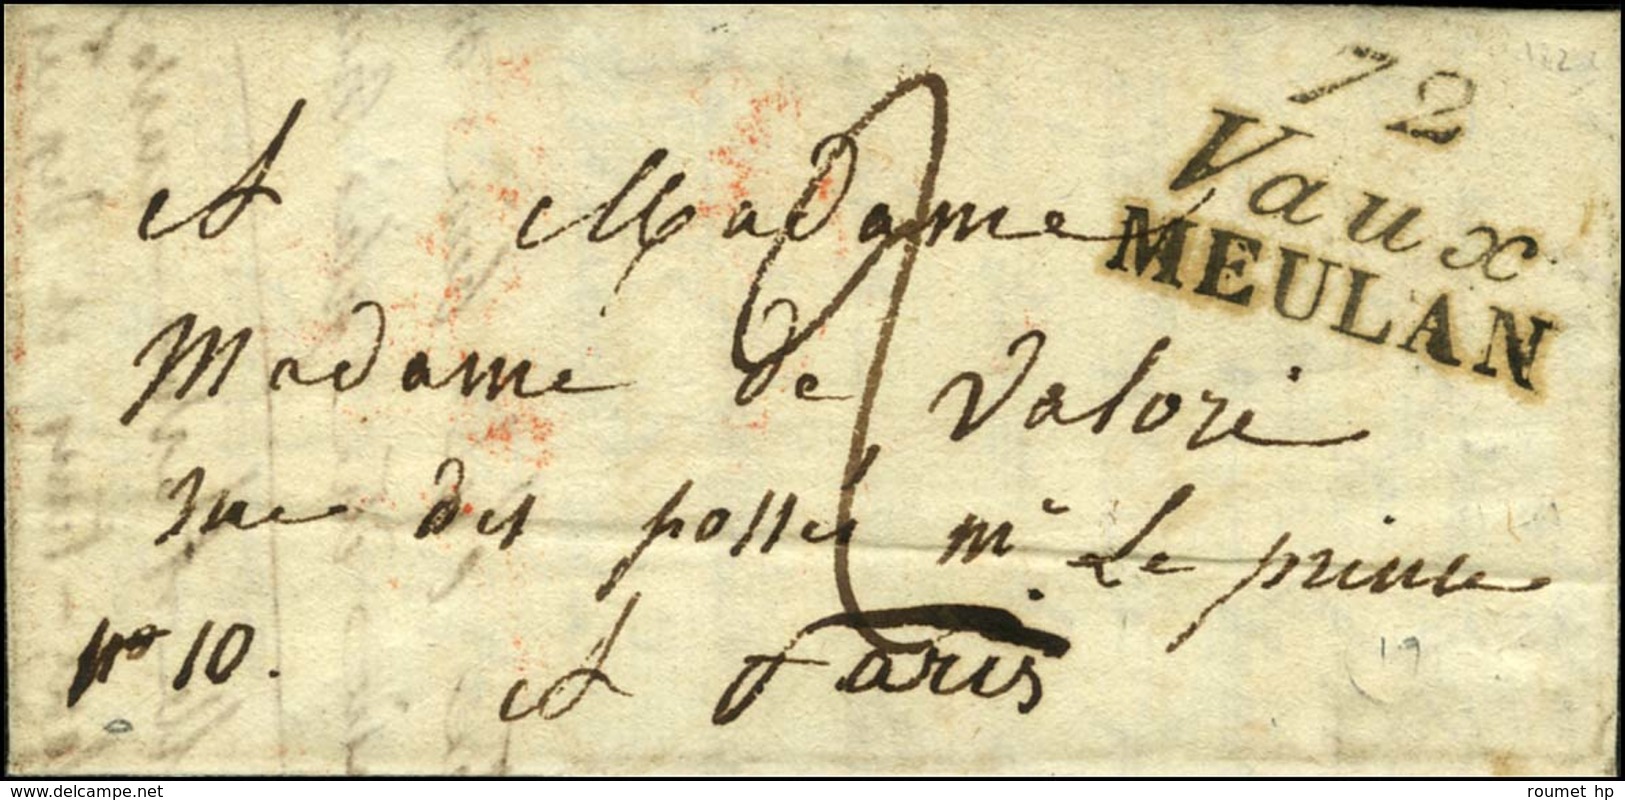 72
Vaux
MEULAN
A Madame
Madame de Valori
rue des fossés mr Le prince
no 10. A Paris
2
www.delcampe.net
roumet hp